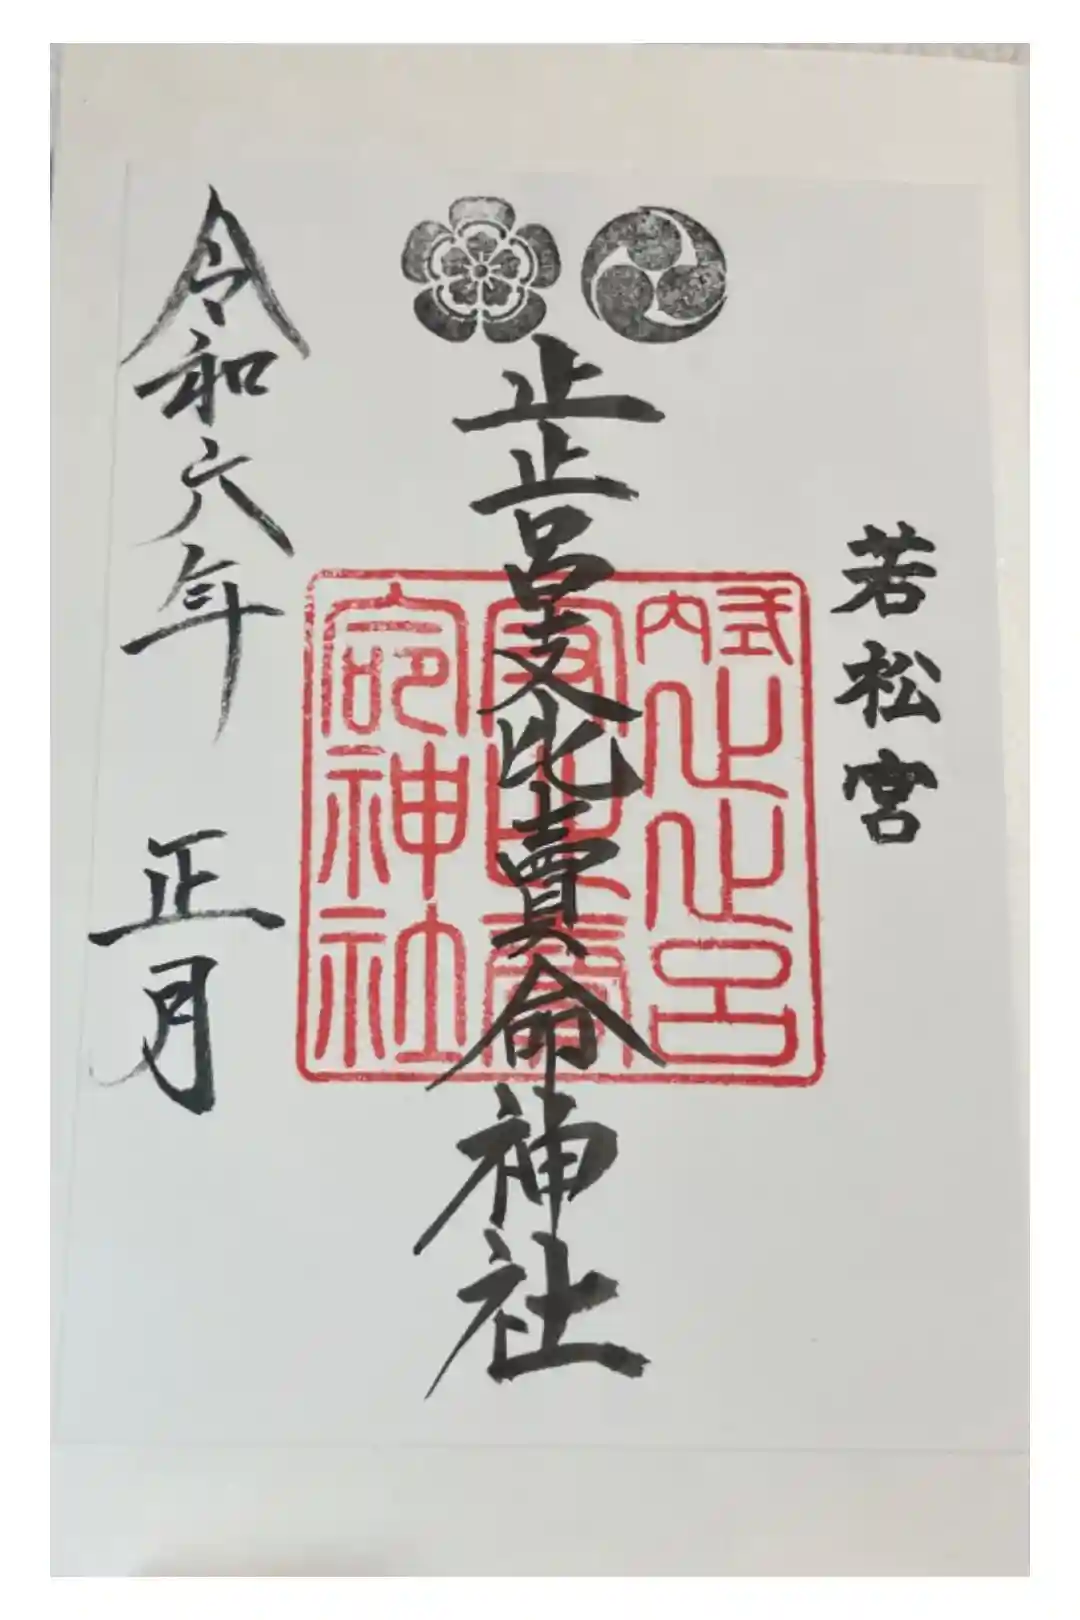 若松宮
止止呂支比賣命神社
式内止止呂
神社
令和六年 正月